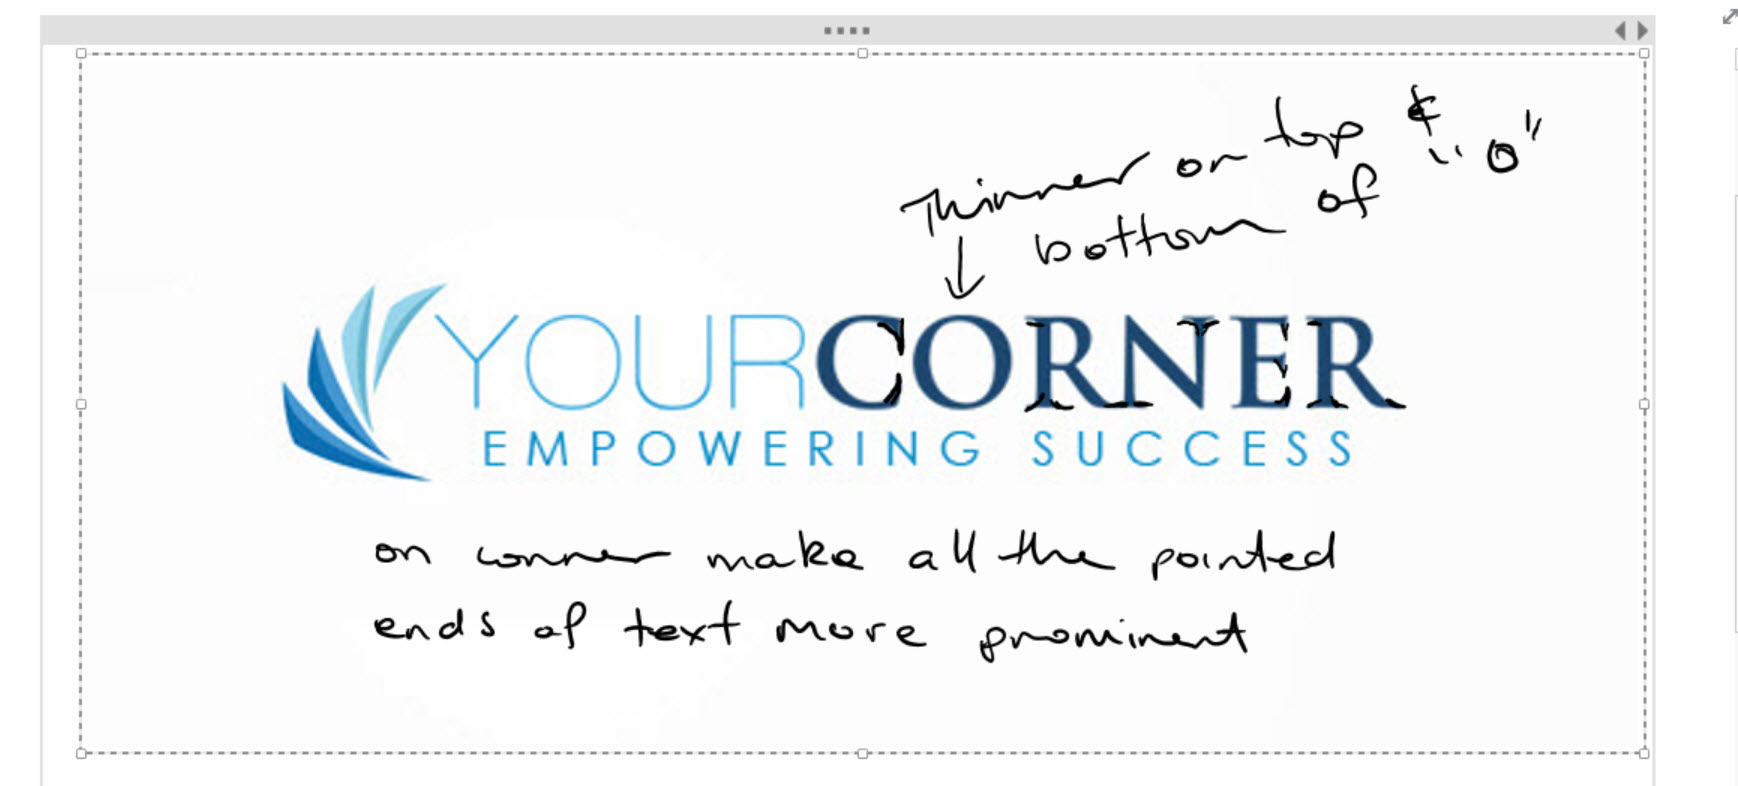 Thinner on top &
bottom of "O"
YOURCORNER
EMPOWERING SUCCESS
on corner make all the pointed
ends of text more prominent